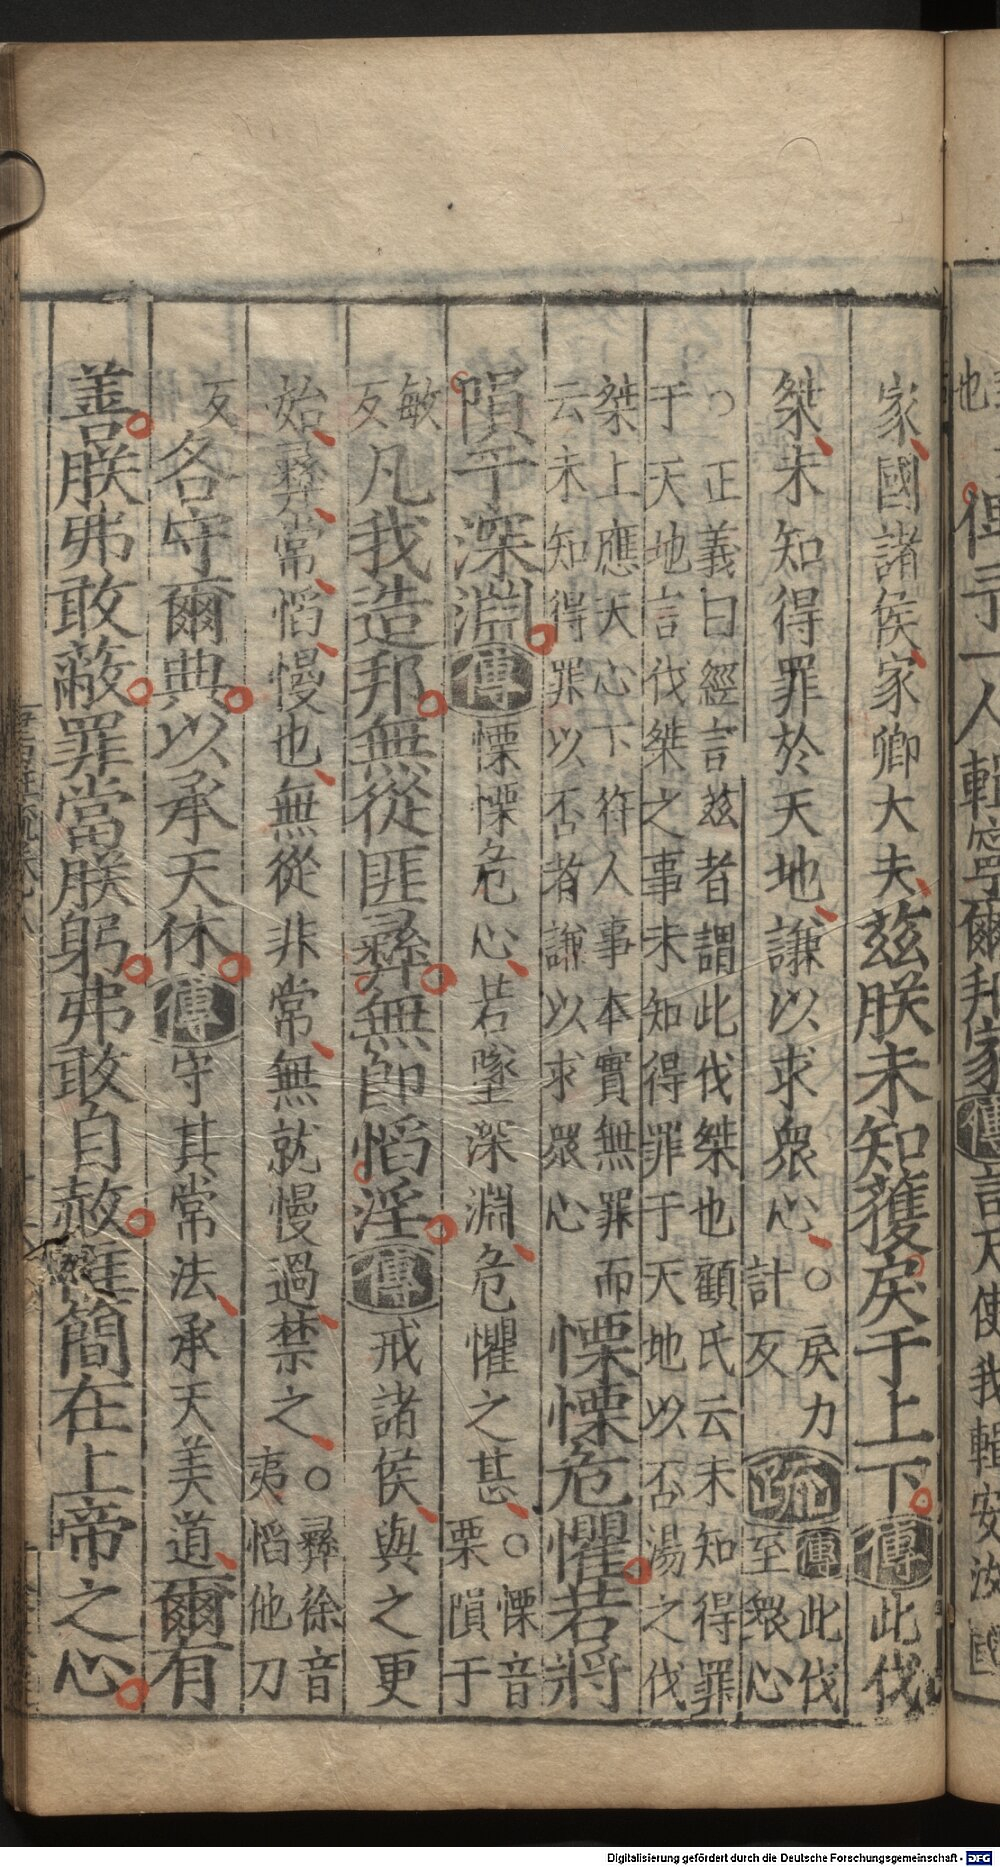 也
俾予一人輯寧爾邦家傳言天使我輯安汝國
家國諸侯家卿大夫茲朕未知獲戾于上下傳此伐
桀未知得罪於天地謙以求衆心○戾力計反疏傳此伐至衆心
○正義曰經言茲者謂此伐桀也顧氏云未知得罪
于天地言伐桀之事未知得罪于天地以否湯之伐
桀上應天心下符人事本實無罪而
云未知得罪以否者謙以求衆心
慄慄危懼若將
隕于深淵傳慄慄危心若墜深淵危懼之甚○慄音栗隕于
敏反凡我造邦無從匪彝無即慆淫傳戒諸侯與之更
始彝常慆慢也無從非常無就慢過禁之○彝徐音夷慆他刀
反各守爾典以承天休傳守其常法承天美道爾有
善朕弗敢蔽罪當朕躬弗敢自赦惟簡在上帝之心
Digitalisierung gefördert durch die Deutsche Forschungsgemeinschaft - DFG